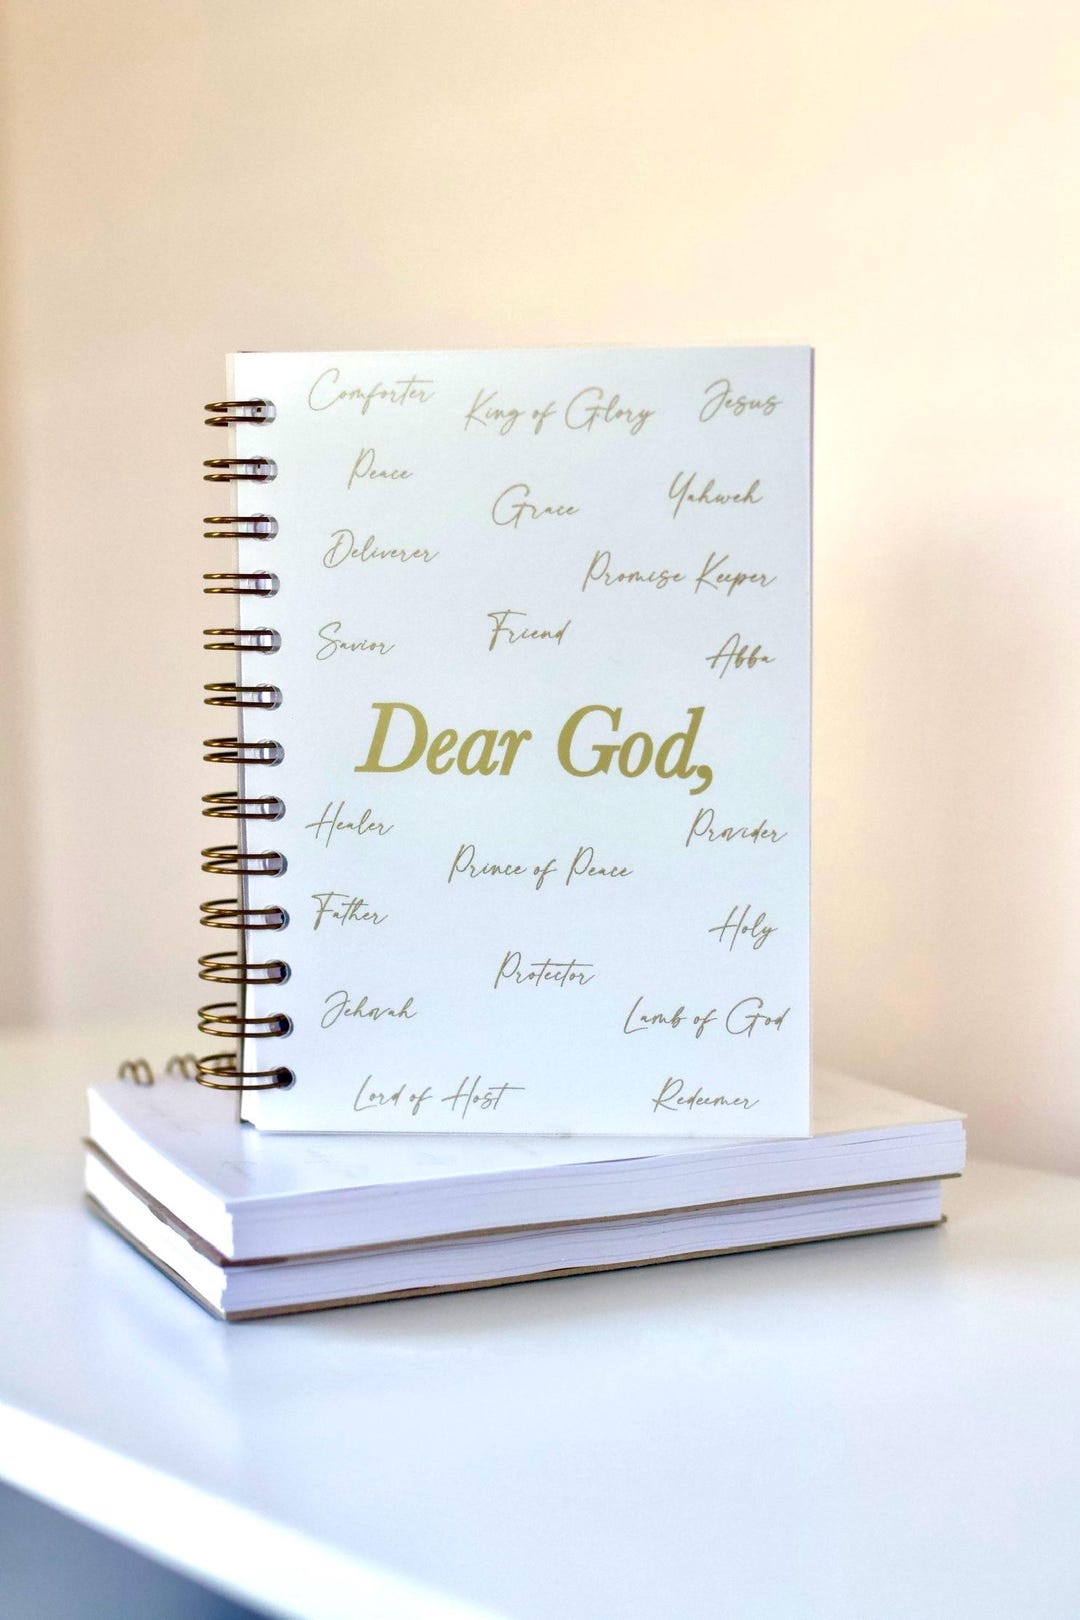 Comforter King of Glory Jesus
Peace
Grace Yahweh
Deliverer
Promise Keeper
Savior Friend Abba
Dear God,
Healer Provider
Prince of Peace
Father Holy
Protector
Jehovah Lamb of God
Lord of Host Redeemer